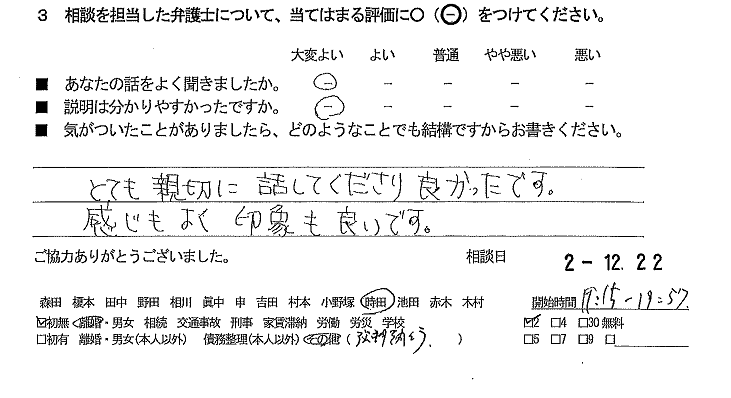 3 相談を担当した弁護士について、当てはまる評価に○（㊀）をつけてください。
大変よい よい 普通 やや悪い 悪い
■ あなたの話をよく聞きましたか。 － － － － －
■ 説明は分かりやすかったですか。 － － － － －
■ 気がついたことがありましたら、どのようなことでも結構ですからお書きください。
とても親切に話してくださり良かったです。
感じもよく印象も良いです。
ご協力ありがとうございました。 相談日 2-12.22
森田 榎本 田中 野田 相川 眞中 申 吉田 村本 小野塚 時田 池田 赤木 木村 開始時間 19:15-19:57
☑初無 離婚・男女 相続 交通事故 刑事 家賃滞納 労働 労災 学校 ☑2 □4 □30 無料
□初有 離婚・男女(本人以外) 債務整理(本人以外) その他 ( ) □5 □7 □9 □